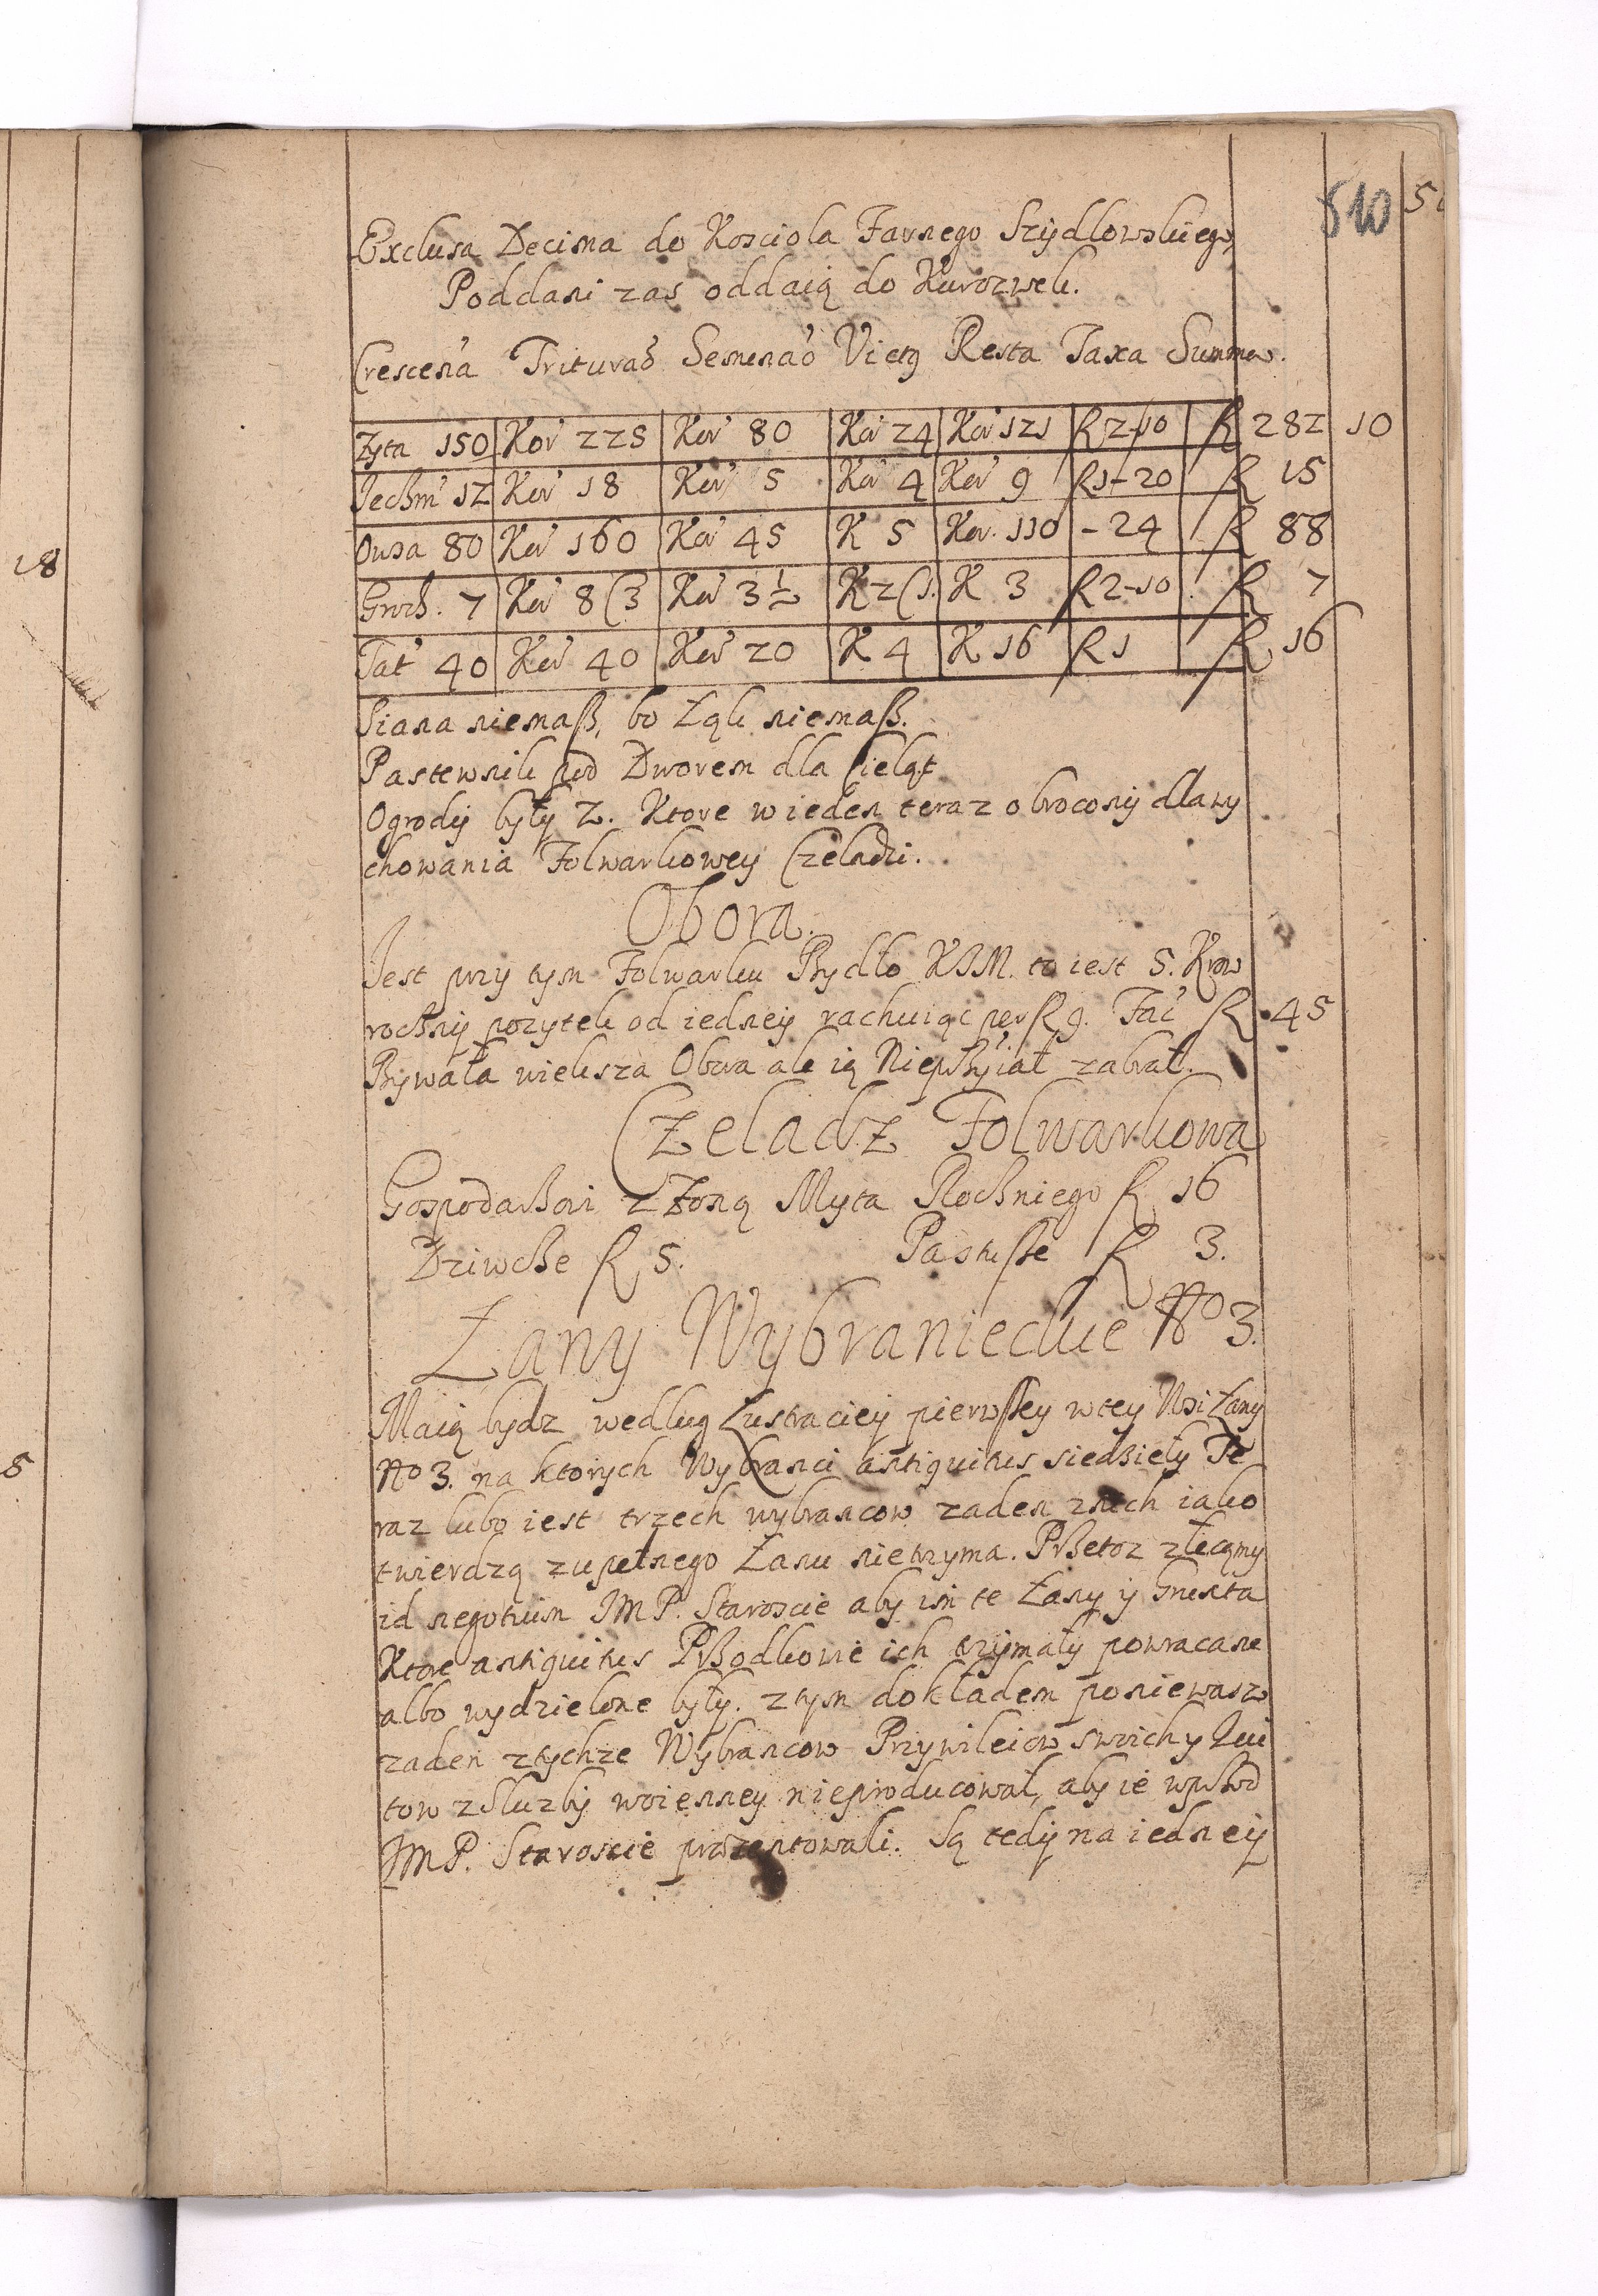 510 5
Exclusa Decima do Kosciola Farnego Szydlowskiego,
Poddani zas oddaią do Kurozwek.
Crescena Triturao Seminao Victus Resta Taxa Summa.
Zyta 150 Kor 225 Kor 80 Kor 24 Kor 121 fl 2-10 fl 282 10
Jechm 12 Kor 18 Kor 5 Kor 4 Kor 9 fl 1-20 fl 15
Owsa 80 Kor 160 Kor 45 K 5 Kor. 110 - 24 fl 88
Groch. 7 Kor 8 C3 Kor 3½ K 2 C1. K 3 fl 2-10. fl 7
Tat 40 Kor 40 Kor 20 K 4 K 16 fl 1 fl 16
Siana niemasz, bo Łąk niemasz.
Pastewnik pod Dworem dla Cieląt
Ogrody były 2. Ktore w ieden teraz obrocony dla wy
chowania Folwarkowey Czeladzi.
Obora.
Jest przy tym Folwarku Bydło KJM. to iest 5. Krow
roczny pozytek od iedney rachuiąc per fl 9. Fac fl 45
Bywała wieksza Obora ale ią Nieprzyiat zabrał.
Czeladz Folwarkowa
Gospodarzowi z Zoną Myta Roczniego fl 16
Dziwcze fl 5. Pastusze fl 3.
Łany Wybranieckie No 3.
Maią bydz wedlug Lustraciey pierwszey w tey Wsi Łany
No 3. na ktorych Wybranci antiquitus siedzieły Te
raz lubo iest trzech wybrancow zaden z nich iako
twierdzą zupełnego Łanu nietrzyma. Przetoz zlecamy
id negotium JMP. Staroscie aby im te Łany y Grunta
Ktore antiquitus Przodkowie ich trzymały powracane
albo wydzielone były. z tym dokładem poniewasz
zaden z tychze Wybrancow Przywileiow swoich y Kwi
tow z Sluzby woienney nieproducował, aby ie wprzod
JMP. Staroscie prezentowali. Są tedy na iedney
18
8